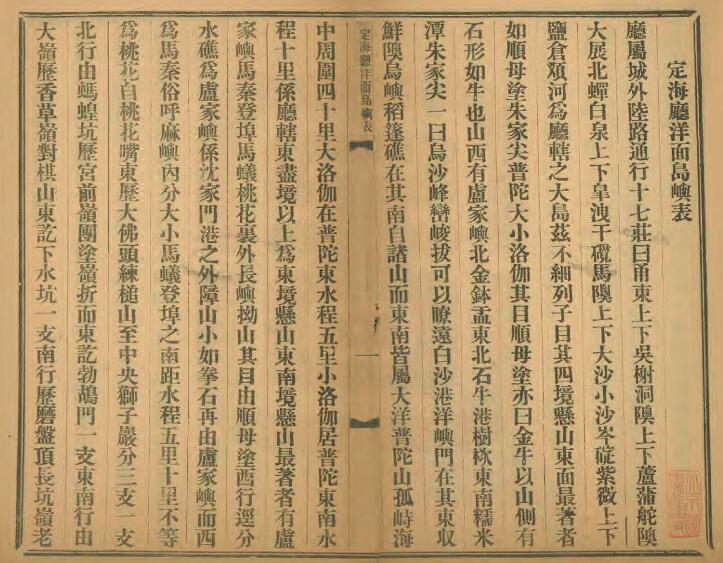 定海廳洋面島嶼表
廳屬城外陸路通行十七莊曰甬東上下吳榭洞隩上下蘆蒲舵隩
大展北蟬白泉上下臯洩干𥕢馬隩上下大沙小沙岑碇紫微上下
鹽倉頒河爲廳轄之大島茲不細列子目其四境懸山東面最著者
如順母塗朱家尖普陀大小洛伽其目順母塗亦曰金牛以山側有
石形如牛也山西有盧家嶼北金鉢盂東北石牛港樹栨東南糯米
潭朱家尖一曰烏沙峰巒峻拔可以瞭遠白沙港洋嶼門在其東収
鮮隩烏嶼稻篷礁在其南自諸山而東南皆屬大洋普陀山孤峙海
定海廳洋面島嶼表
一
中周圍四十里大洛伽在普陀東水程五里小洛伽居普陀東南水
程十里係廳轄東盡境以上爲東境懸山東南境懸山最著者有盧
家嶼馬秦登埠馬蟻桃花裏外長嶼拗山其目由順母塗西行逕分
水礁爲盧家嶼係沈家門港之外障山小如拳石再由盧家嶼而西
爲馬秦俗呼麻嶼內分大小馬蟻登埠之南距水程五里十里不等
爲桃花自桃花嘴東歷大佛頭練槌山至中央獅子巖分三支一支
北行由螞蝗坑歷宮前嶺團塗嶺折而東訖勃鴣門一支東南行由
大嶺歷香草嶺對棋山東訖下水坑一支南行歷磨盤頂長坑嶺老